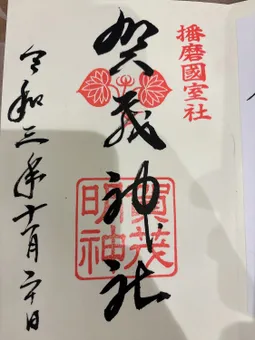 播磨國室社
賀茂神社
賀茂
明神
令和三年十一月二十日